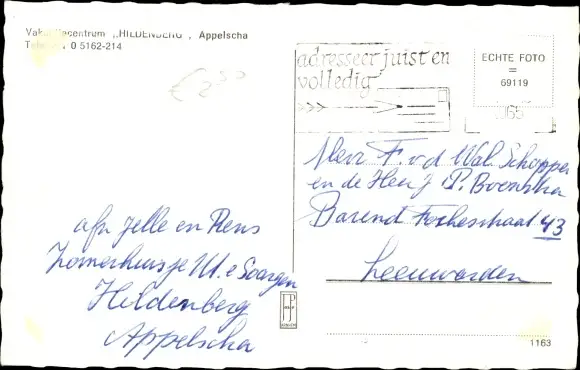 Vakantiecentrum „HILDENBERG", Appelscha
Telefoon 0 5162-214
€ 2,50
adresseer juist en
volledig
ECHTE FOTO
=
69119
Mevr F. v d Wal. Schopper
en de Heer J P. Boonstra
Barend Fockestraat 43
Leeuwarden
afz Jelle en Rens
Zomerhuisje W. e Soargen
Hildenberg
Appelscha
JP
1163